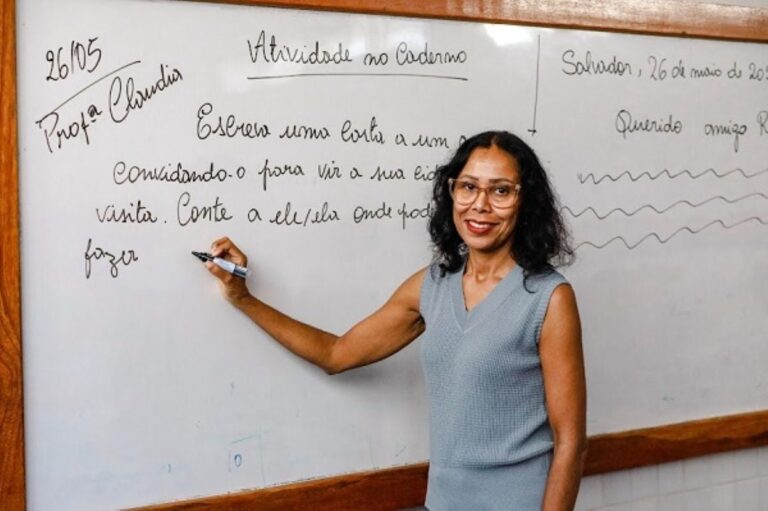 26/05
Profª Claudia
Atividade no Caderno
Escreva uma carta a um
convidando-o para vir a sua
visita. Conte a ele/ela onde
fazer
Salvador, 26 de maio de
Querido amigo